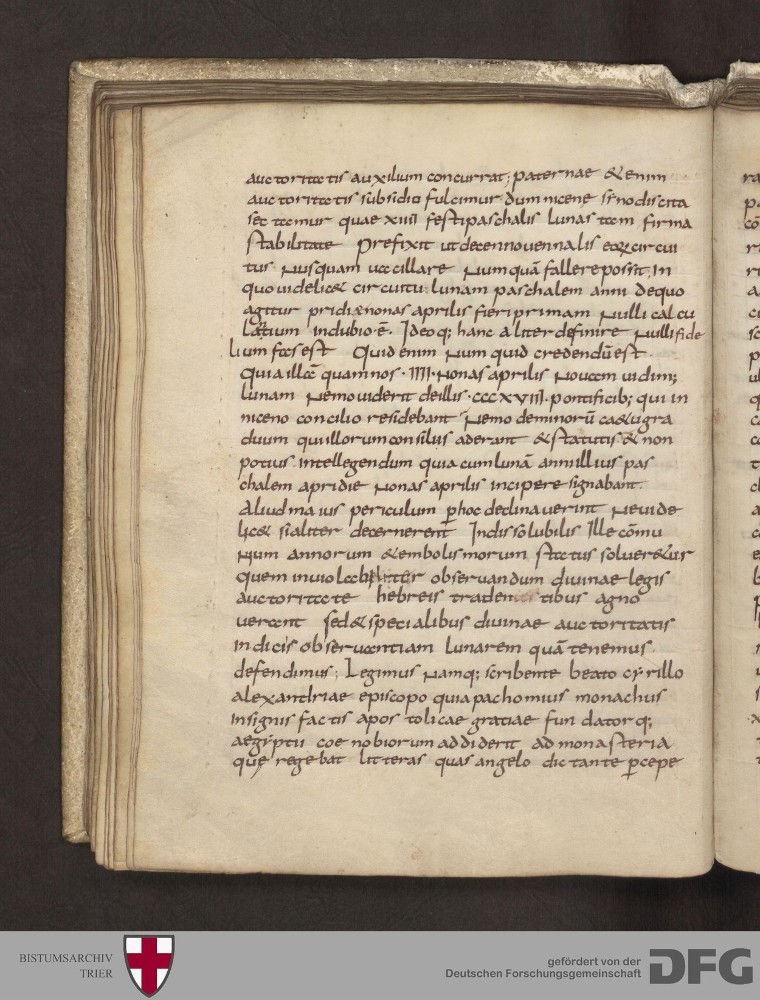 auctoritatis auxilium concurrat; paternae & enim
auctoritatis subsidio fulcimur dum nicene synodi scita
sectemur quae xiiii festi paschalis lunas tam firma
stabilitate prefixit ut decennouennalis eorum circui
tus nusquam uacillare numquā fallere possit. In
quo uidelic& circuitu lunam paschalem anni de quo
agitur pridie nonas aprilis fieri primam nulli calcu
lantium in dubio ē. Ideoq; hanc aliter definire nulli fide
lium fas est Quid enim numquid credendū est
Quia illā quam nos ·IIII· Nonas aprilis nouam uidim;
lunam Nemo uiderit de illis ·cccxviii· pontificib; qui in
niceno concilio residebant Nemo de minorū ca&u gra
duum qui illorum consiliis aderant & statutis & non
potius intellegendum quia cum lunā anni illius pas
chalem a pridie Nonas aprilis incipere signabant.
Aliud maius periculum p hoc declinauerint Ne uide
lic& si aliter decernerent Indissolubilis Ille cōmu
nium annorum & embolismorum status solueretur
quem inuiolabiliter obseruandum diuinae legis
auctoritate hebreis tradentibus agno
uerant sed & specialibus diuinae auctoritatis
indiciis obseruantiam lunarem quā tenemus
defendimus; Legimus Namq; scribente beato cyrillo
alexandriae episcopo quia pachomius monachus
insignis factis apostolicae gratiae fundatorq;
aegyptii coenobiorum addiderit ad monasteria
quę regebat litteras quas angelo dictante pcepe
BISTUMSARCHIV
TRIER
gefördert von der
Deutschen Forschungsgemeinschaft
DFG